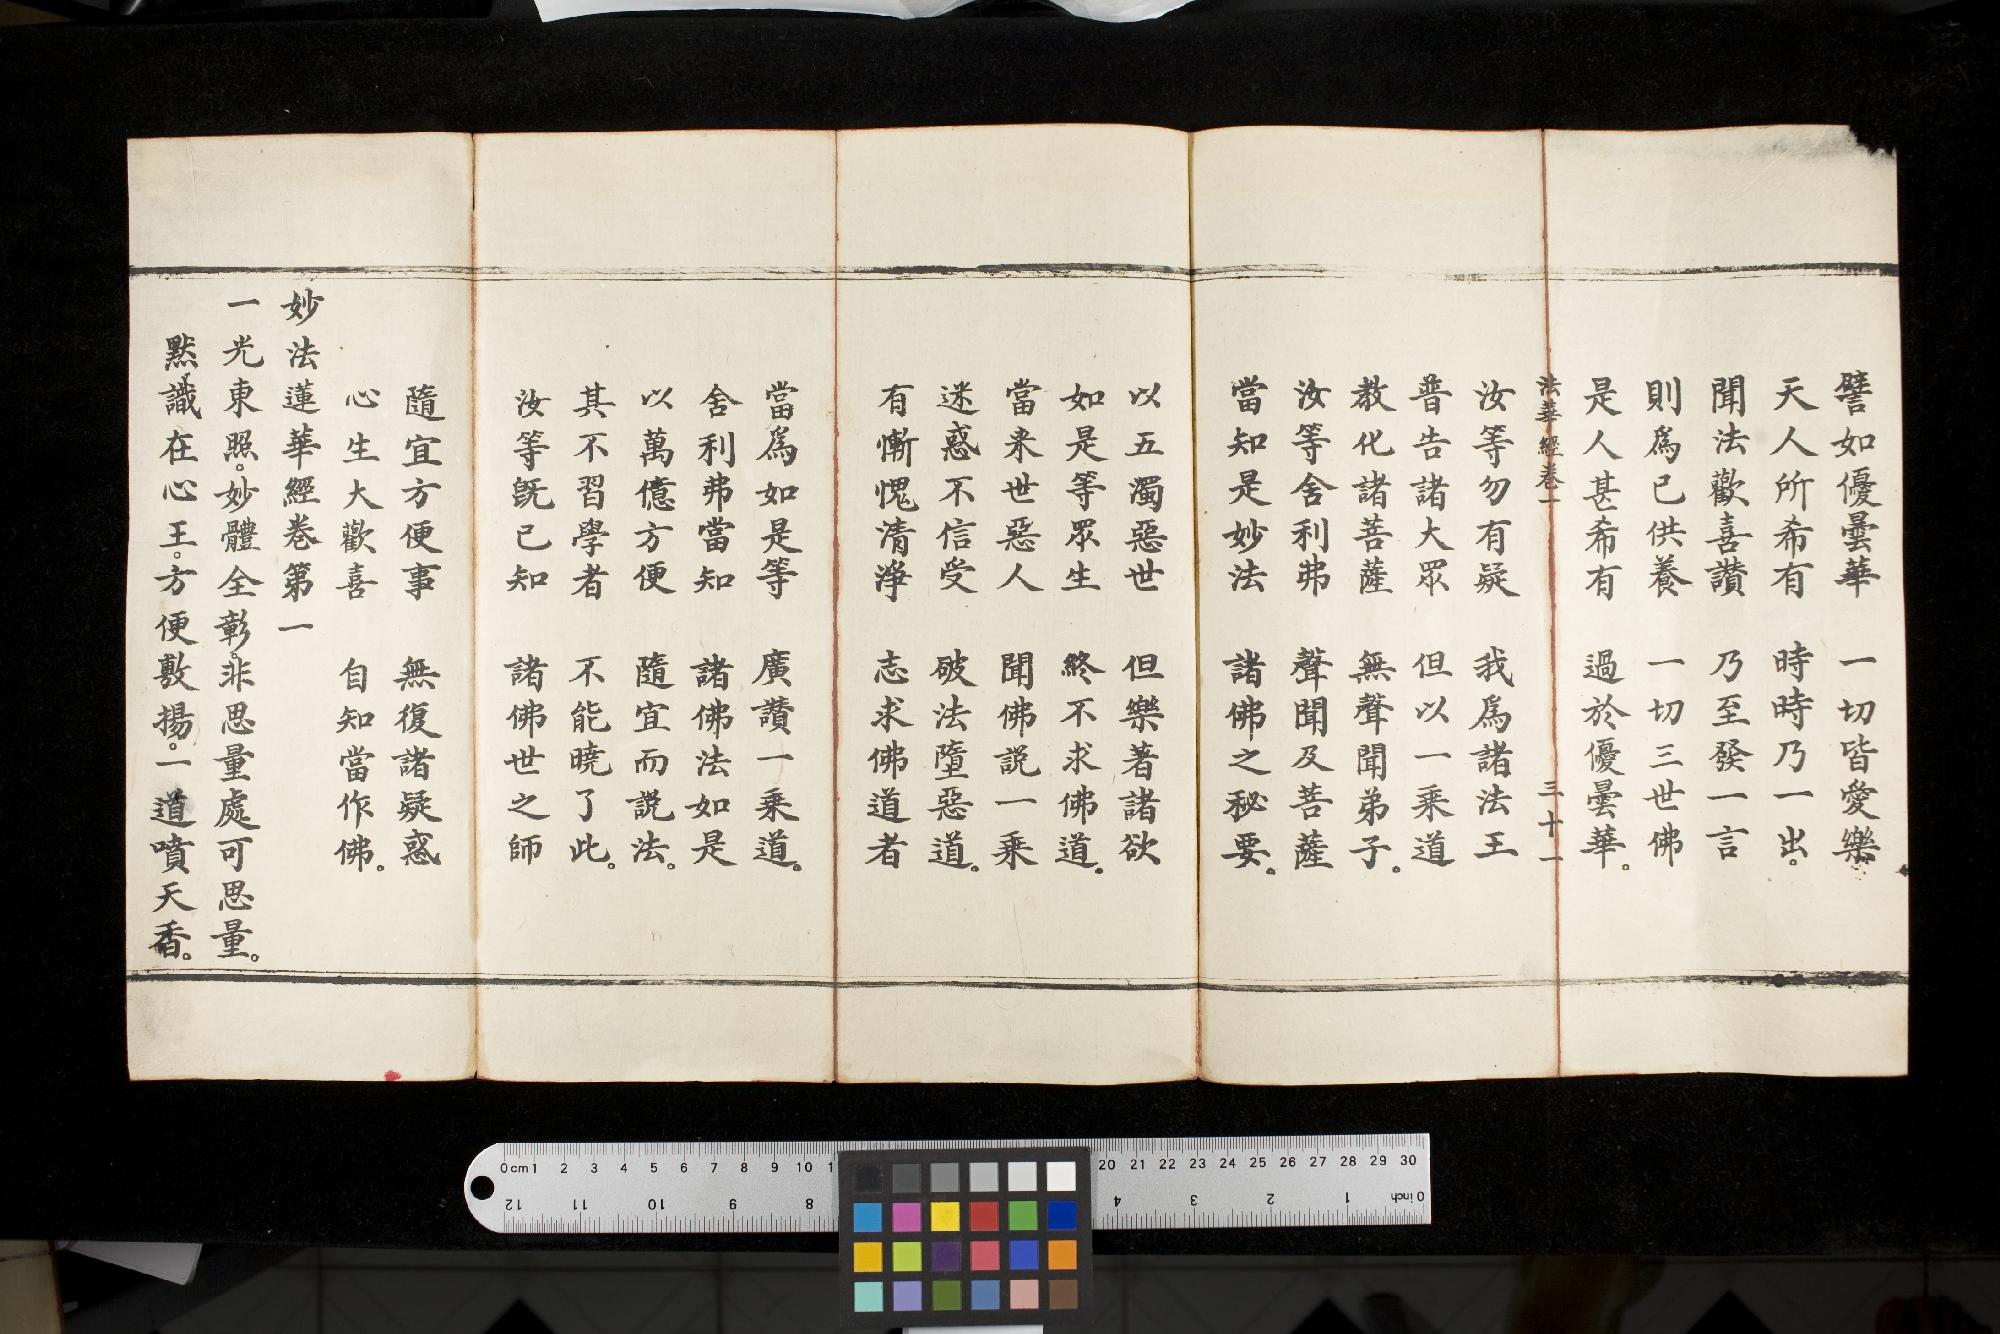 譬如優曇華　一切皆愛樂
天人所希有　時時乃一出。
聞法歡喜讃　乃至發一言
則爲已供養　一切三世佛
是人甚希有　過於優曇華。
法華經卷一　三十一
汝等勿有疑　我爲諸法王
普告諸大眾　但以一乘道
教化諸菩薩　無聲聞弟子。
汝等舍利弗　聲聞及菩薩
當知是妙法　諸佛之秘要。
以五濁惡世　但樂著諸欲
如是等眾生　終不求佛道。
當来世惡人　聞佛說一乘
迷惑不信受　破法墮惡道。
有慚愧清淨　志求佛道者
當爲如是等　廣讃一乘道。
舍利弗當知　諸佛法如是
以萬億方便　隨宜而說法。
其不習學者　不能曉了此。
汝等既已知　諸佛世之師
隨宜方便事　無復諸疑惑
心生大歡喜　自知當作佛。
妙法蓮華經卷第一
一光東照。妙體全彰。非思量處可思量。
默識在心王。方便敷揚。一道噴天香。
0 cm 1 2 3 4 5 6 7 8 9 10 1 20 21 22 23 24 25 26 27 28 29 30
12 11 10 9 8 4 3 2 1 0 inch